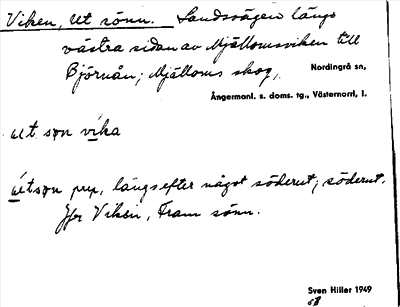 Viken, Ut sönn. Landsvägen längs
västra sidan av Mjällomsviken till
Björnån; Mjälloms skog,
Nordingrå sn,
Ångermanl. s. doms. tg., Västernorrl. l.
ut søn vika
útsøn prep, längsefter något söderut; söderut.
Jfr Viken, Fram sönn.
Sven Hiller 1949